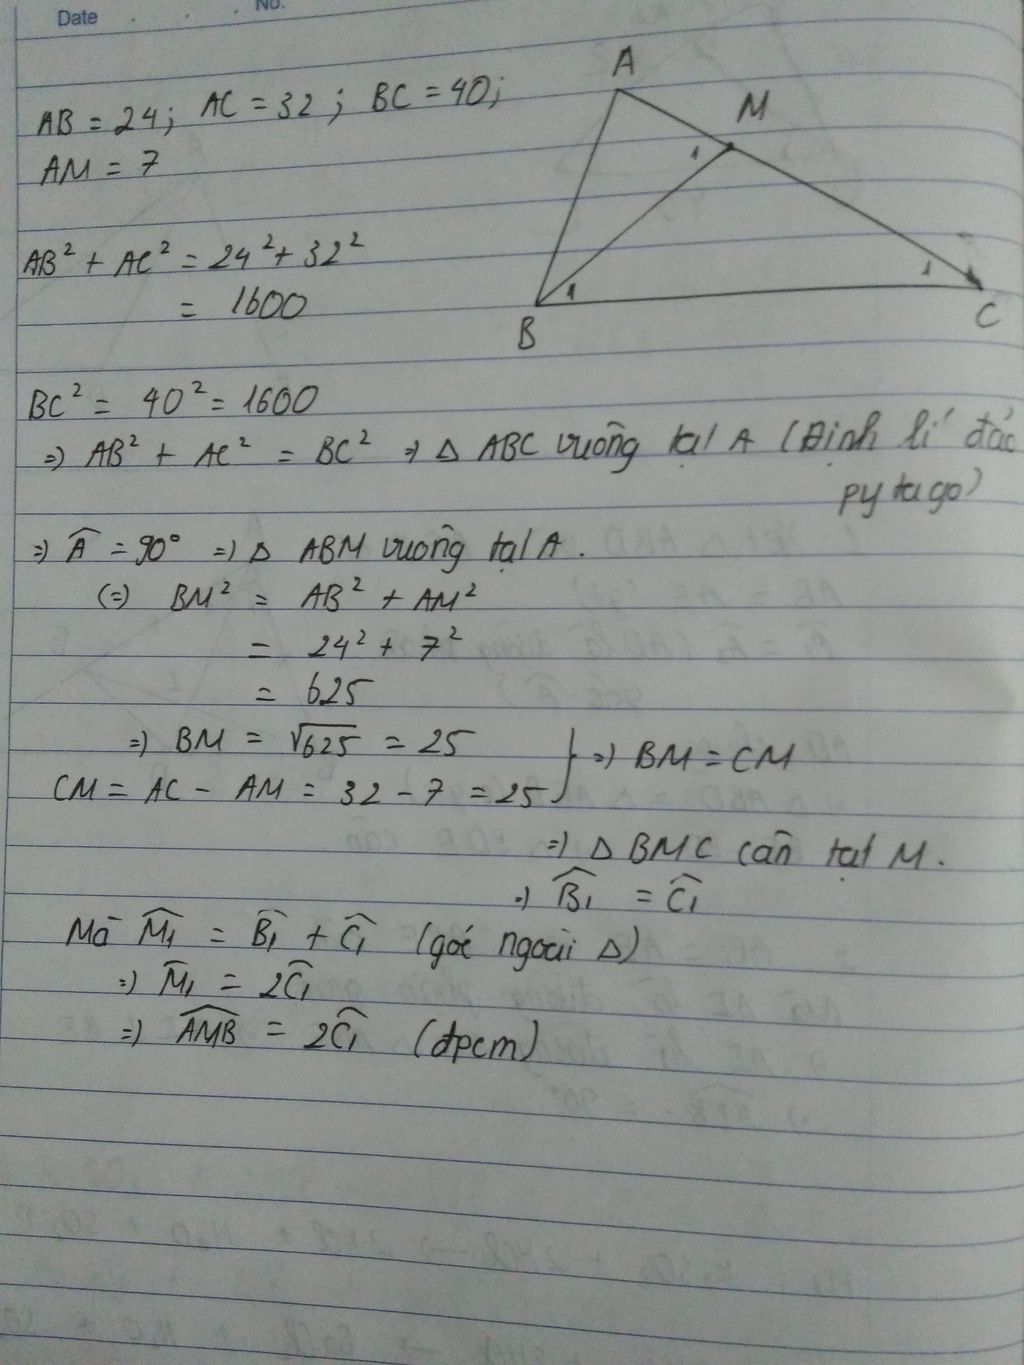 Date No.
AB = 24; AC = 32; BC = 40;
AM = 7
A
M
1
1
1
B
C
AB² + AC² = 24² + 32²
= 1600
BC² = 40² = 1600
=> AB² + AC² = BC² => Δ ABC vuông tại A (Định lí đảo
pytago)
=> Â = 90° => Δ ABM vuông tại A.
(=) BM² = AB² + AM²
= 24² + 7²
= 625
=> BM = √625 = 25
CM = AC - AM = 32 - 7 = 25 } => BM = CM
=> Δ BMC cân tại M.
=> B̂₁ = Ĉ₁
Mà M̂₁ = B̂₁ + Ĉ₁ (góc ngoài Δ)
=> M̂₁ = 2Ĉ₁
=> ÂMB̂ = 2Ĉ₁ (đpcm)